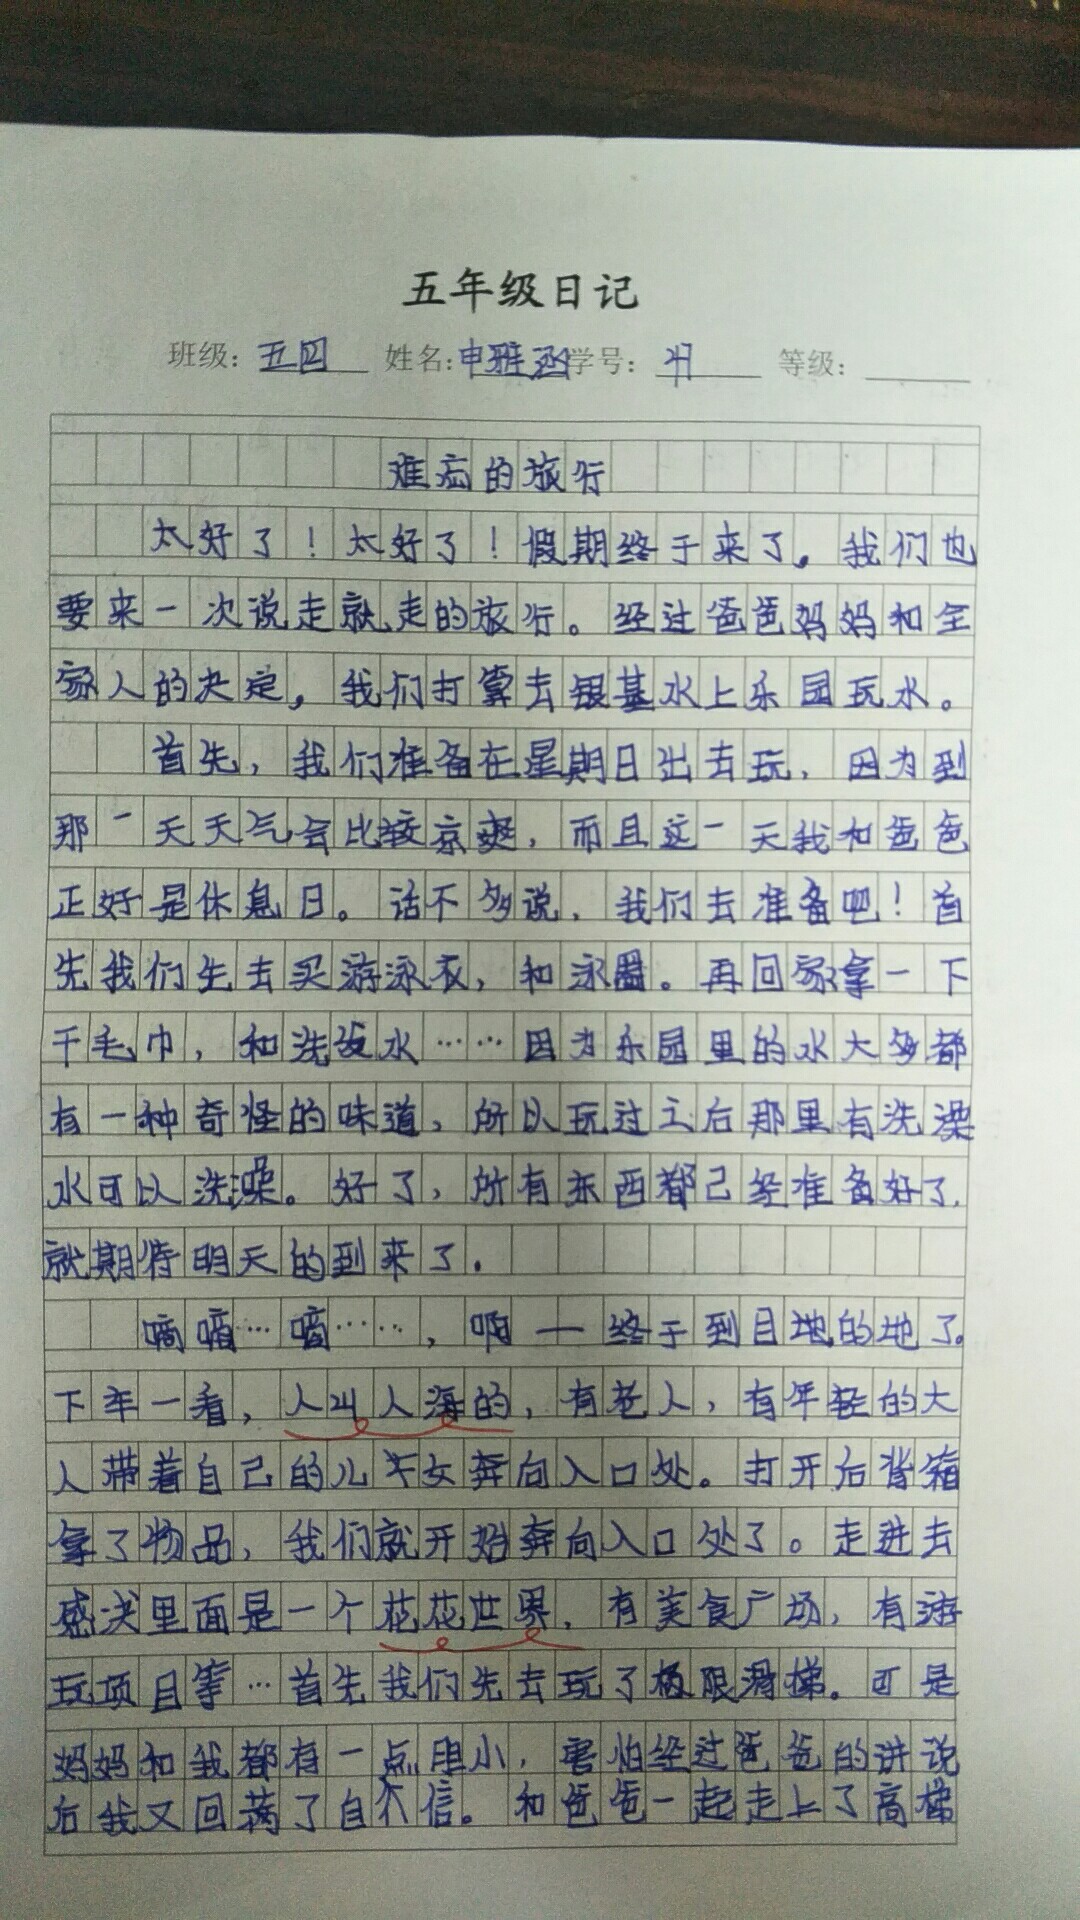 五年级日记
班级：五四 姓名：申雅函 学号： 等级：
难忘的旅行
太好了！太好了！假期终于来了。我们也
要来一次说走就走的旅行。经过爸爸妈妈和全
家人的决定，我们打算去银基水上乐园玩水。
首先，我们准备在星期日出去玩，因为到
那一天天气会比较凉爽，而且这一天我和爸爸
正好是休息日。话不多说，我们去准备吧！首
先我们先去买游泳衣，和泳圈。再回家拿一下
干毛巾，和洗发水……因为乐园里的水大多都
有一种奇怪的味道，所以玩过之后那里有洗澡
水可以洗澡。好了，所有东西都已经准备好了，
就期待明天的到来了。
嘀嘀…嘀……，啊——终于到目地的地了。
下车一看，人叫人海的，有老人，有年轻的大
人带着自己的儿女奔向入口处。打开后背箱
拿了物品，我们就开始奔向入口处了。走进去
感决里面是一个花花世界，有美食广场，有游
玩项目等…首先我们先去玩了极限滑梯。可是
妈妈和我都有一点胆小，害怕经过爸爸的讲说
后我又回满了自信。和爸爸一起走上了高梯